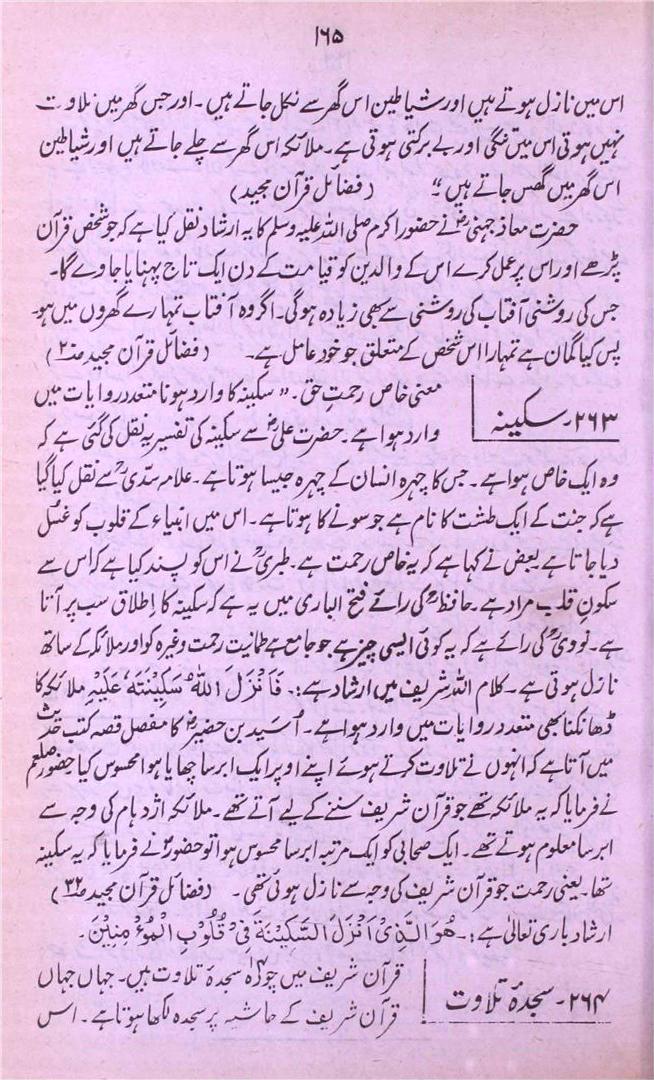 ۱۶۵
اس میں نازل ہوتے ہیں اور شیاطین اس گھر سے نکل جاتے ہیں ۔ اور جس گھر میں تلاوت
نہیں ہوتی اس میں تنگی اور بے برکتی ہوتی ہے۔ ملائکہ اس گھر سے چلے جاتے ہیں اور شیاطین
اس گھر میں گھس جاتے ہیں ؛؛ (فضائل قرآن مجید)
حضرت معاذ جہنیؓ نے حضور اکرم صلی اللہ علیہ وسلم کا یہ ارشاد نقل کیا ہے کہ جو شخص قرآن
پڑھے اور اس پر عمل کرے اس کے والدین کو قیامت کے دن ایک تاج پہنایا جاوے گا۔
جس کی روشنی آفتاب کی روشنی سے بھی زیادہ ہوگی۔ اگر وہ آفتاب تمہارے گھروں میں ہو۔
پس کیا گمان ہے تمہارا اس شخص کے متعلق جو خود عامل ہے۔ (فضائل قرآن مجید صـ۲۰)
۲۶۳۔ سکینہ
معنی خاص رحمتِ حق ۔ " سکینہ کا وارد ہونا متعدد روایات میں
وارد ہوا ہے ۔ حضرت علیؓ سے سکینہ کی تفسیر یہ نقل کی گئی ہے کہ
وہ ایک خاص ہوا ہے ۔ جس کا چہرہ انسان کے چہرہ جیسا ہوتا ہے ۔ علامہ سدّیؒ سے نقل کیا گیا
ہے کہ جنت کے ایک طشت کا نام ہے جو سونے کا ہوتا ہے ۔ اس میں انبیاء کے قلوب کو غسل
دیا جاتا ہے بعض نے کہا ہے کہ یہ خاص رحمت ہے ۔ طبریؒ نے اس کو پسند کیا ہے کہ اس سے
سکونِ قلب مراد ہے ۔ حافظؒ کی رائے فتح الباری میں یہ ہے کہ سکینہ کا اِطلاق سب پر آتا
ہے ۔ نوویؒ کی رائے ہے کہ یہ کوئی ایسی چیز ہے جو جامع ہے طمانیت رحمت وغیرہ کو اور ملائکہ کے ساتھ
نازل ہوتی ہے ۔ کلام اللہ شریف میں ارشاد ہے :۔ فَاَنْزَلَ اللهُ سَكِيْنَتَهٗ عَلَيْهِ ملائکہ کا
ڈھانکنا بھی متعدد روایات میں وارد ہوا ہے ۔ اُسَید بن حضیرؓ کا مفصل قصہ کتب حدیث
میں آتا ہے کہ انہوں نے تلاوت کرتے ہوئے اپنے اوپر ایک ابر سا چھایا ہوا محسوس کیا حضور صلعم
نے فرمایا کہ یہ ملائکہ تھے جو قرآن شریف سننے کے لیے آتے تھے ۔ ملائکہ اژدہام کی وجہ سے
ابر سا معلوم ہوتے تھے ۔ ایک صحابی کو ایک مرتبہ ابر سا محسوس ہوا تو حضورؐ نے فرمایا کہ یہ سکینہ
تھا۔ یعنی رحمت جو قرآن شریف کی وجہ سے نازل ہوئی تھی ۔ (فضائل قرآن مجید صـ۳۲)
ارشاد باری تعالیٰ ہے :۔ هُوَ الَّذِىْ اَنْزَلَ السَّكِيْنَةَ فِىْ قُلُوْبِ الْمُؤْمِنِيْنَ ۔
۲۶۴۔ سجدۂ تلاوت
قرآن شریف میں چودہ سجدۂ تلاوت ہیں۔ جہاں جہاں
قرآن شریف کے حاشیہ پر سجدہ لکھا ہوتا ہے ۔ اس